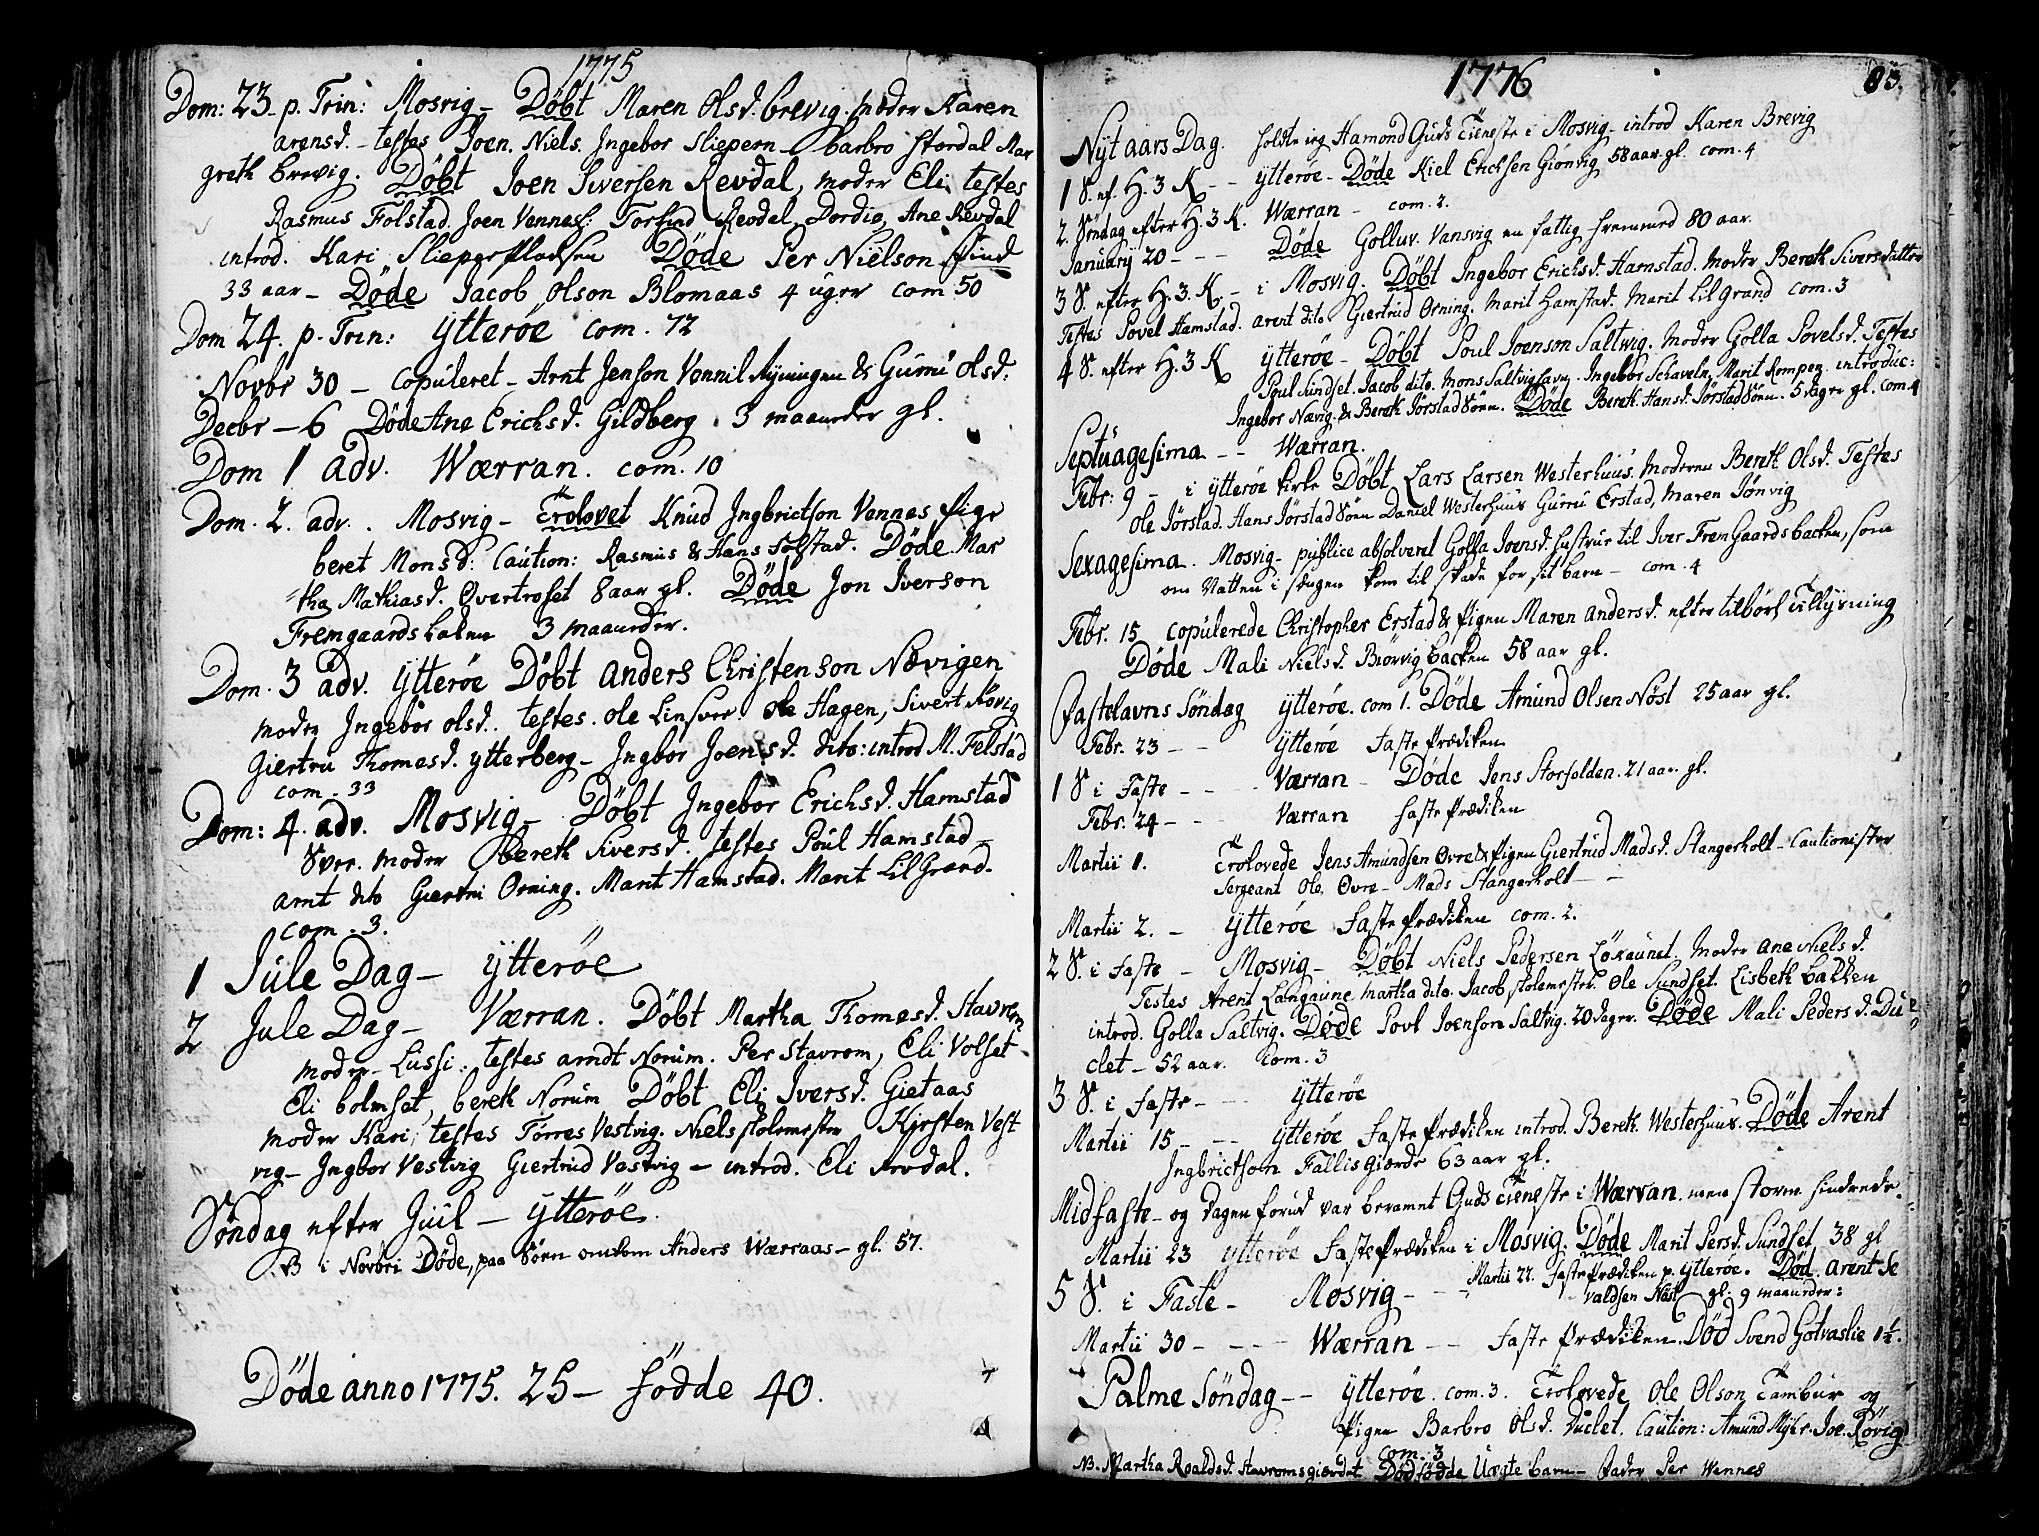 1775
Dom: 23. p. Trin: Mosvig – Döbt Maren Olsd. Brevig. moder Karen
arensd. – testes Joen. Niels. Ingebor Sliepern – barbro Stordal Mar
greth brevig. Döbt Joen Siversen Revdal, moder Eli testes
Rasmus Folstad. Joen Vennes. Revdal, Dordig, Ane Revdal
introd. Kari Slieperpladsen Döde Per Nielson Sund
33 aar – Döde Jacob Olson Blomaas 4 uger com 50
Dom 24. p. Trin: Ytteröe com. 72
Novbr 30 – copuleret – Arnt Jenson Vennil & Gurru Olsd:
Decbr – 6 Döde Ane Erichsd. Gildberg 3 maaneder gl.
Dom 1 adv. Wærran. com. 10
Dom. 2. adv. Mosvig – Trolovet Knud Ingbrictson Vennes Pige
beret Monsd: Caution: Rasmus & Hans Folstad. Döde Mar
tha Mathiasd. Overtroset 8 aar gl. Döde Jon Iverson
Fremgaardsbaken 3 maaneder.
Dom. 3 adv. Ytteröe Döbt Anders Christenson Nævigen
moder Ingebor Olsd. testes. Ole Linsver. Ole Hagen, Sivert Rövig
Giertru Thomasd. Ytterberg – Ingbor Joensd. dito: introd M. Felstad
com. 33
Dom: 4. adv. Mosvig – Döbt Ingebor Erichsd. Hamstad
moder bereth Siversd. testes Poul Hamstad –
arnt dito Giertru Orning. Marit Hamstad. Marit Lil Grand.
com. 3.
1 Jule Dag – Ytteröe
2 Jule Dag – Værran. Döbt Martha Thomasd. Stavrem
moder – Lussi. testes arndt Norum. Per Stavrom, Eli Volset
Eli bolmset, bereth Norum Döbt Eli Iversd. Gietaas
moder Kari, testes Torres Vestvig. Niels Skolemester Kirsten Vest
vig – Ingbor Vestvig Giertrud Vestvig – introd. Eli Revdal.
Söndag efter Juul – Ytteröe.
NB i Novbri Döde, paa Söen omkom Anders Wærraas – gl. 57.
Döde anno 1775. 25 – födde 40.
1776
83.
Nytaars Dag. holdte ieg Hamond Guds Tieneste i Mosvig – introd Karen Brevig
1 S. ef. H. 3 K – – Ytteröe – Döde Kiel Erichsen Giönvig 58 aar. gl. com. 4
2. Söndag efter H. 3 K. Wærran – com. 2.
January 20 – – – Döde Golluv. Vansvig en fattig 80 aar.
3 S. efter H. 3. K – i Mosvig. Döbt Ingebor Erichsd. Hamstad. moder Bereth Siversdatter
Testes Povel Hamstad. arent dito Giertrud Orning. Marit Hamstad. Marit Lilgrand com. 3
4 S. efter H. 3 K Ytteröe – Döbt Poul Joenson Saltvig. moder Golla Povelsd. Testes
Poul Sundset. Jacob dito. Mons Saltvighavn. Ingebor Schaveln, Marit Rompen introduc:
Ingebor Nævig. & Bereth Jörstad Sönn. Döde Bereth Hansd. Jörstad Sönn. 5 dager gl. com. 4
Septuagesima – – Wærran.
Febr: 9 – i Ytteröe kirke Döbt Lars Larsen Westerhuus. moderen Bereth Olsd. Testes
Ole Jörstad. Hans Jörstad Sönn Daniel Westerhuus Gurru Erstad, Maren Jönvig
Sexagesima. Mosvig – publice absolveret Golla Joensd. hustrue til Iver Fremgaardsbacken, som
om Natten i sængen kom til skade for sit barn – com. 4
Febr. 15 copulerede Christopher Erstad & Pigen Maren Andersd. efter tilbörl. Tillysning
Döde Mali Nielsd. Biörvigbacken 58 aar gl.
Fastelavns Söndag Ytteröe. com 1. Döde Amund Olsen Nöst 25 aar gl.
Febr. 23 – – Ytteröe Faste Prædiken
1 S i Faste – – – – Værran – Döde Jens Storfolden. 21 aar. gl.
Febr. 24 – – Værran faste Prædiken
Martii 1. Trolovede Jens Amundsen Ovre & Pigen Giertrud Madsd. Stangerholt – Cautionister
Sergeant Ole Ovre – Mads Stangerholt – –
Martii 2. – Ytteröe Faste Prædiken com. 2.
2 S. i Faste – Mosvig – Döbt Niels Pedersen Löxaunet. Moder Ane Nielsd.
Testes Arent Langaune. martha dito. Jacob skolemester. Ole Sundset. Lisbeth Balken
introd. Golla Saltvig. Döde Povl Joenson Saltvig. 20 dager. Döde Mali Pedersd. Du=
clet – 52 aar. com. 3
3 S. i Faste – – – Ytteröe
Martii 15 – – – Ytteröe Faste Prædiken introd. Bereth. Westerhuus. Döde Arent
Ingbrictson Fallisgiærde 63 aar gl.
Midfaste – og dagen forud var beramt Guds Tieneste i Wærran. men storm hindrede.
Martii 23 Ytteröe Faste Prædiken i Mosvig. Döde Marit Persd. Sundset 38 gl
5 S. i Faste – Mosvig – – Martii 27. Faste Prædiken p. Ytteröe. Död. Arent Se
valdsen Nöst gl. 9 maaneder:
Martii 30 – – – – Wærran – – Faste Prædiken. Död Svend Gotvaslie 1½.
Palme Söndag – – Ytteröe. com. 3. Trolovede Ole Olson Tambur og
Pigen Barbro Olsd. Duclet. Caution: Amund Myhr. Joe. Rövig
com. 3
NB. Martha Roaldsd. Stavromsgiærdet Dödfödde Uægte barn – Fader Per Wennes